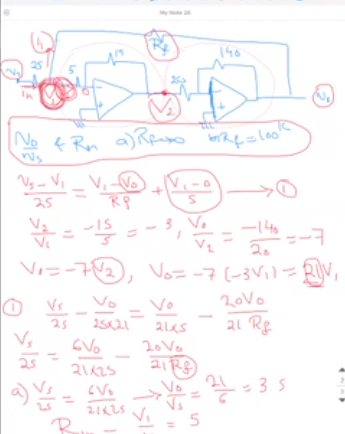 My Note 28
If
Rf
Vs 25 V1 5 15 20 140 Vo
Iin 0 V2
Vo/Vs & Rin a) Rf=∞ b) Rf=100K
(Vs - V1)/25 = (V1 - Vo)/Rf + (V1 - 0)/5 → ①
V2/V1 = -15/5 = -3, Vo/V2 = -140/20 = -7
Vo = -7 V2, Vo = -7 (-3V1) = 21V1
① Vs/25 - Vo/(25×21) = Vo/(21×5) - 20Vo/(21 Rf)
Vs/25 = 6Vo/(21×25) - 20Vo/(21 Rf)
a) Vs/25 = 6Vo/(21×25) → Vo/Vs = 21/6 = 3.5
Rin = V1/Iin = 5